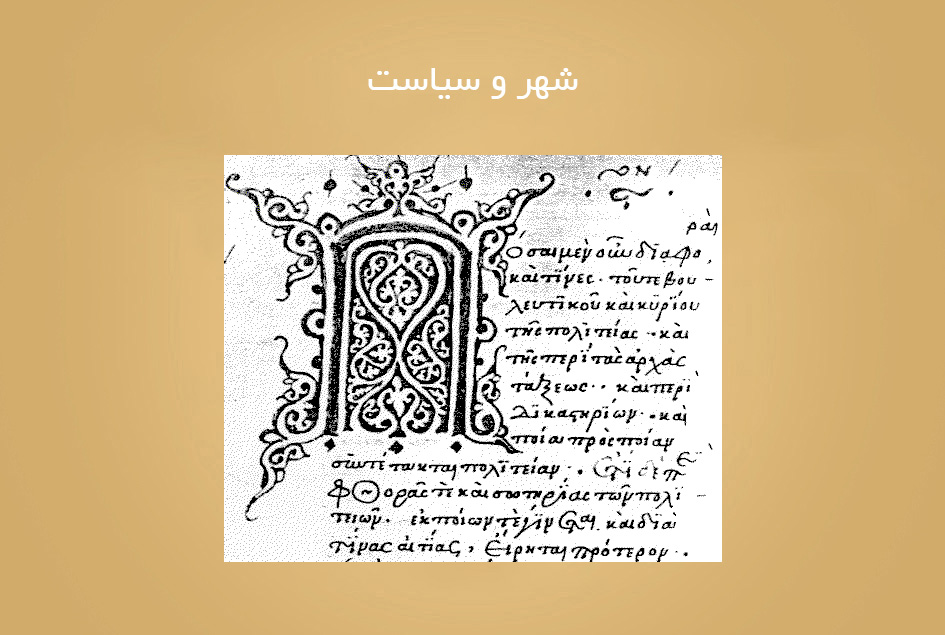 شهر و سیاست
ραὶ
Πόσαι μὲν οὖν διαφο
καὶ τίνες · τοῦ τε βου -
λευτικοῦ καὶ κυρίου
τῆς πολιτείας · καὶ
τῆς περὶ τὰς ἀρχὰς
τάξεως · · καὶ περὶ
δικαστηρίων · καὶ
ποία πρὸς ποίαν
συντέτακται πολιτείαν ·
φθορᾶς τε καὶ σωτηρίας τῶν πολι -
τειῶν · ἐκ ποίων τε γίν καὶ διὰ
τίνας αἰτίας, εἴρηται πρότερον ·